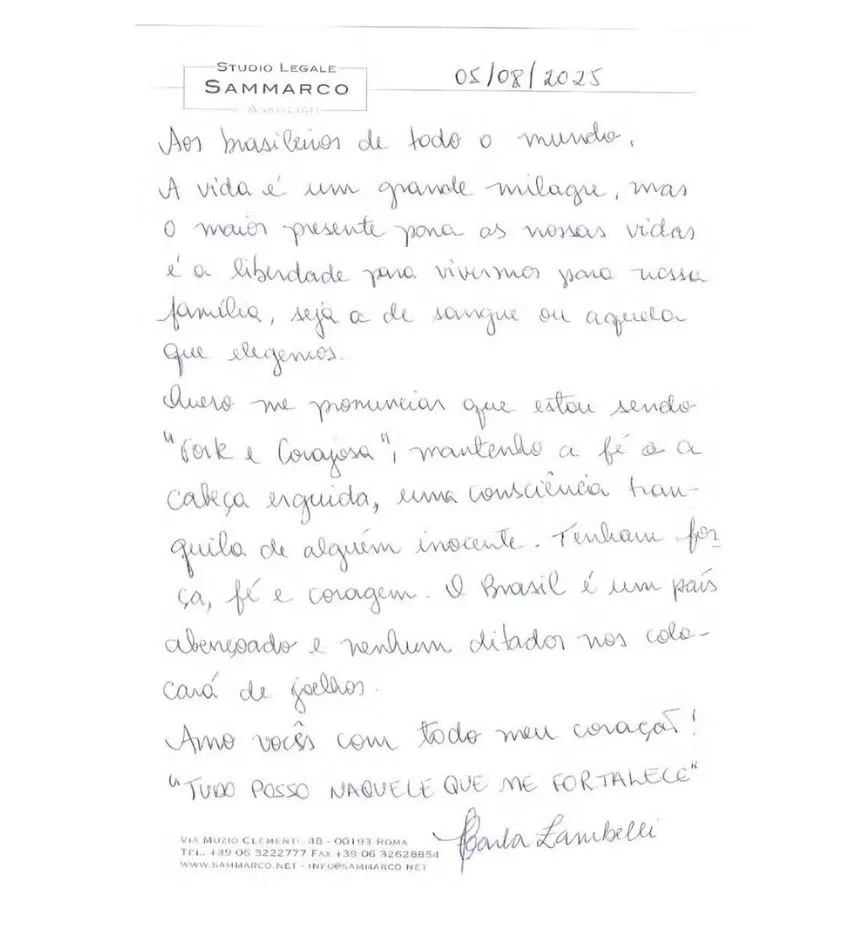 STUDIO LEGALE
SAMMARCO
ASSOCIATI
05/08/2025
Aos brasileiros de todo o mundo,
A vida é um grande milagre, mas
o maior presente para as nossas vidas
é a liberdade para vivermos para nossa
família, seja a de sangue ou aquela
que elegemos.
Quero me pronunciar que estou sendo
"Forte e Corajosa", mantenho a fé e a
cabeça erguida, uma consciência tran-
quila de alguém inocente. Tenham for-
ça, fé e coragem. O Brasil é um país
abençoado e nenhum ditador nos colo-
cará de joelhos.
Amo vocês com todo meu coração!
"TUDO POSSO NAQUELE QUE ME FORTALECE"
Carla Zambelli
VIA MUZIO CLEMENTI, 48 - 00193 ROMA
TEL. +39 06 3222777 FAX +39 06 32628854
WWW.SAMMARCO.NET - INFO@SAMMARCO.NET